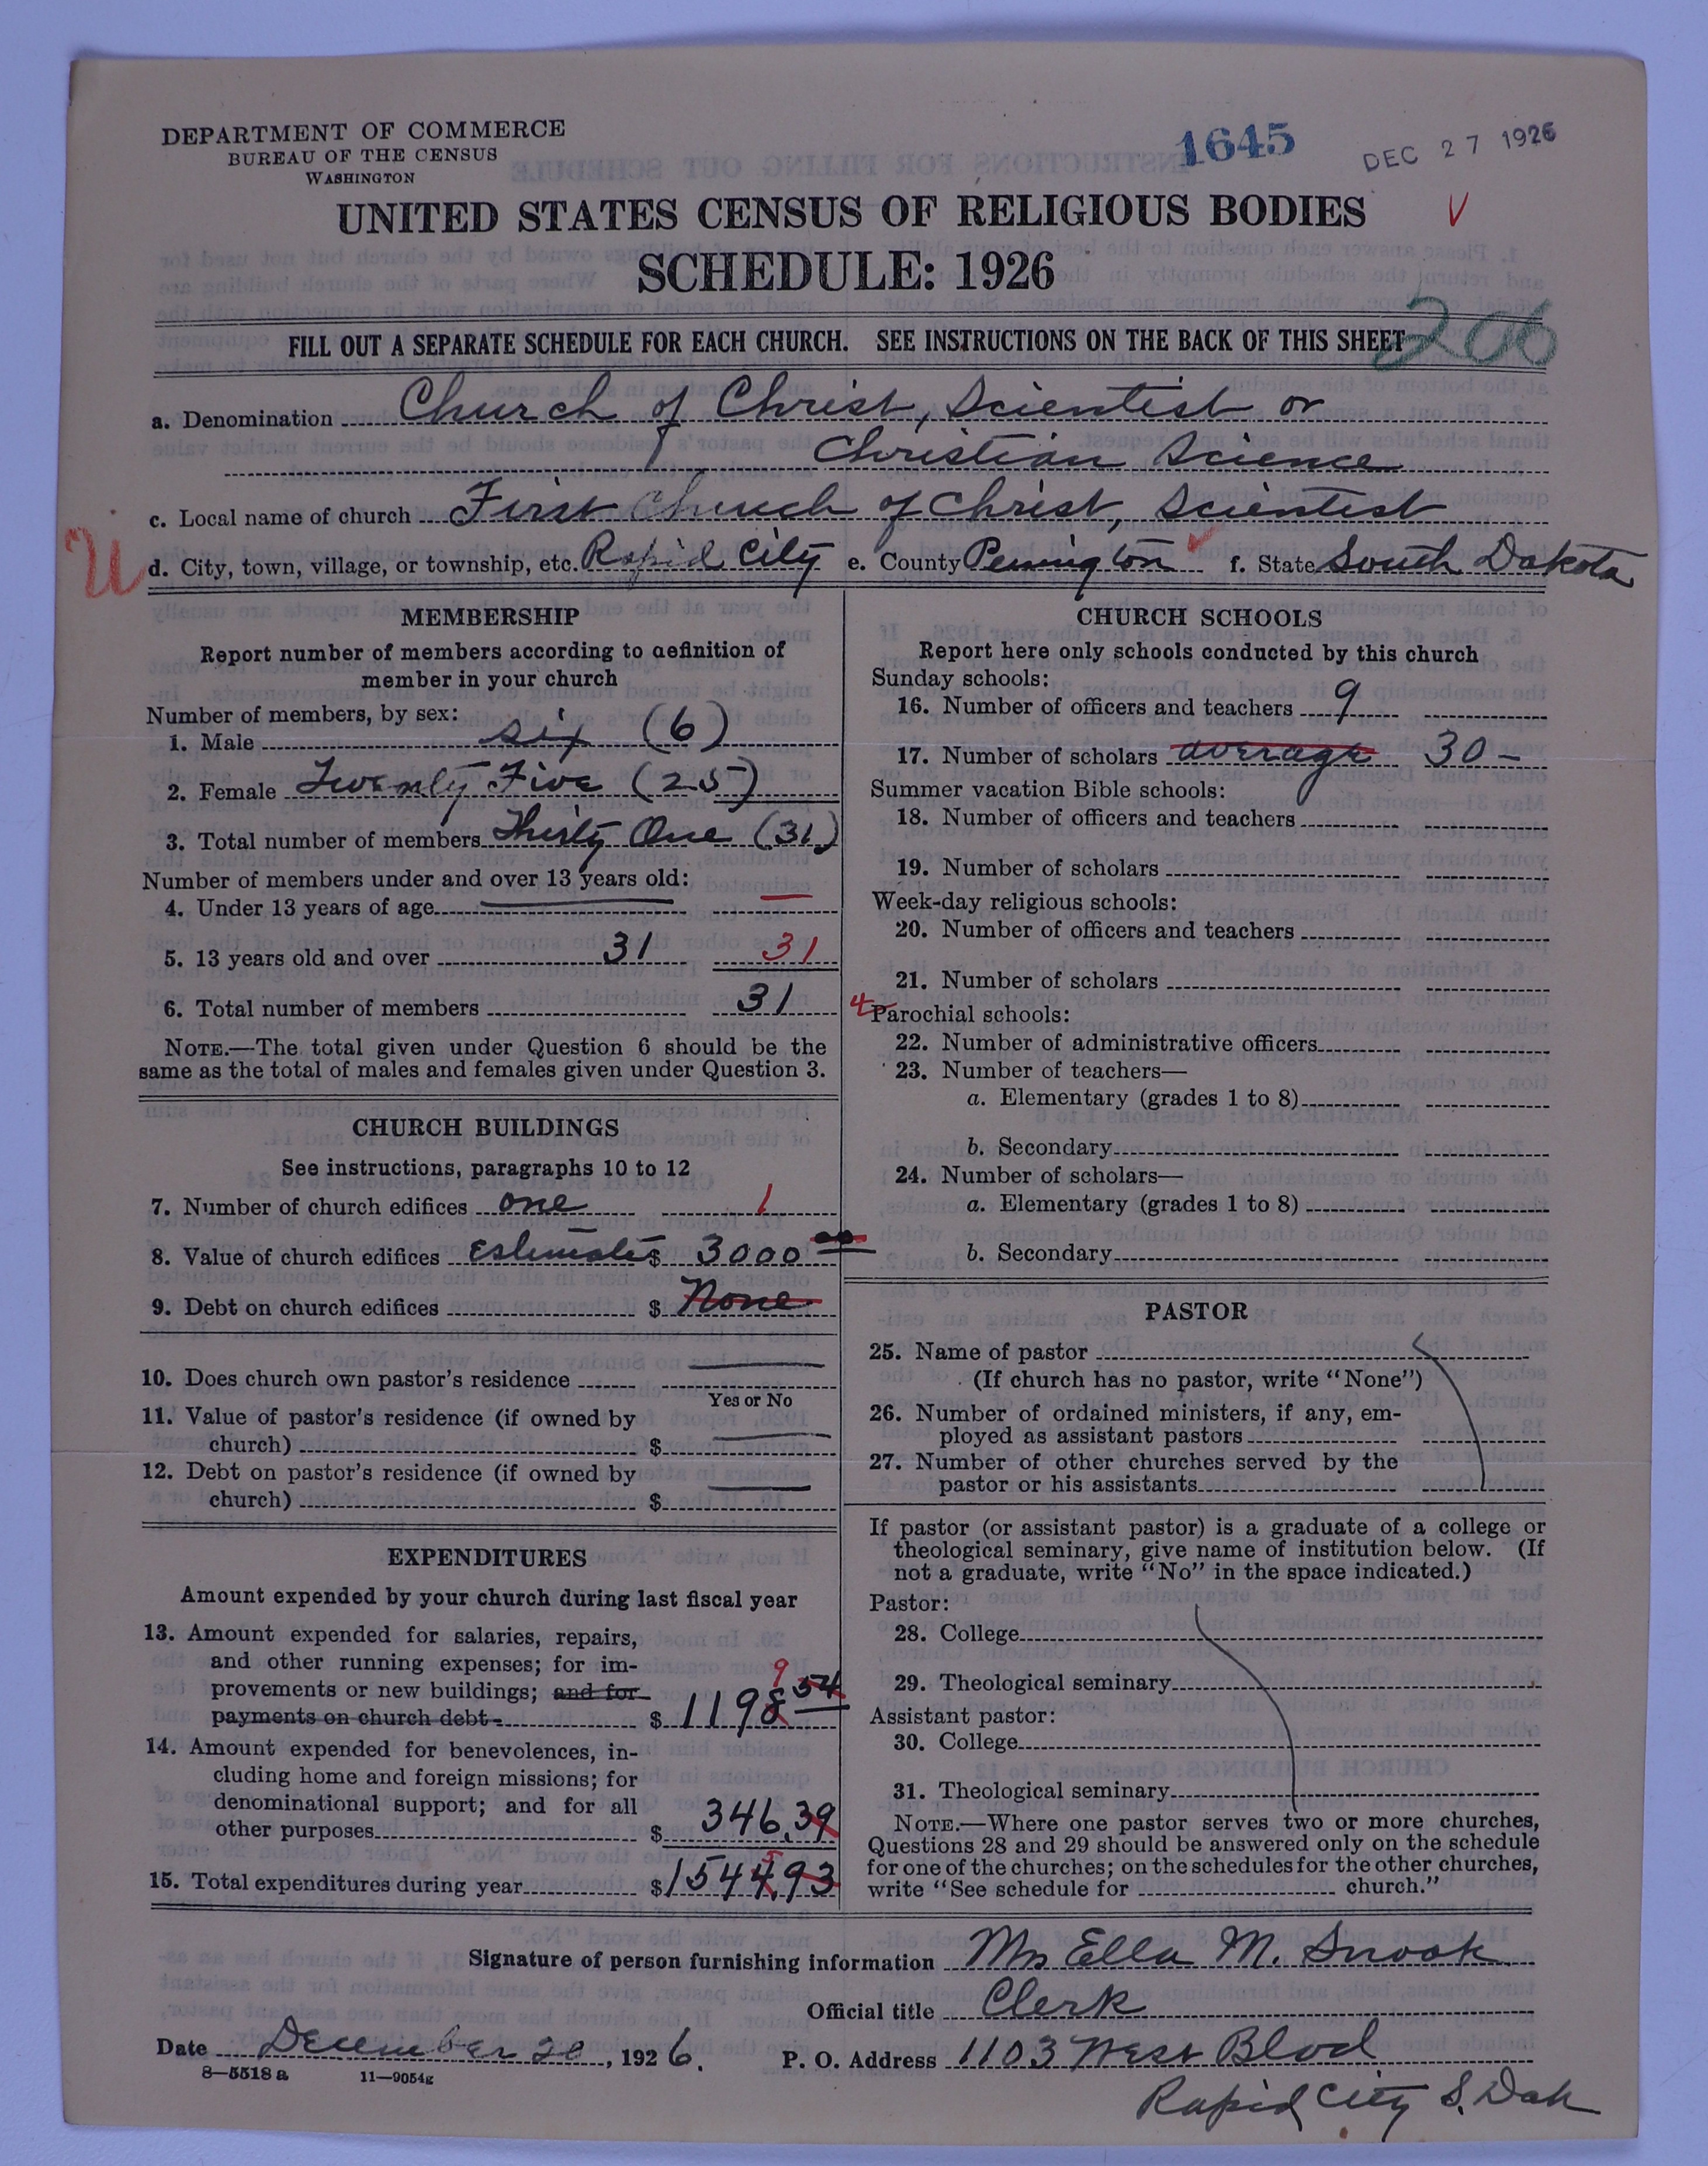 DEPARTMENT OF COMMERCE
BUREAU OF THE CENSUS
WASHINGTON
1645
DEC 27 1926
UNITED STATES CENSUS OF RELIGIOUS BODIES
SCHEDULE: 1926
FILL OUT A SEPARATE SCHEDULE FOR EACH CHURCH. SEE INSTRUCTIONS ON THE BACK OF THIS SHEET
206
a. Denomination Church of Christ, Scientist or
Christian Science
c. Local name of church First Church of Christ, Scientist
d. City, town, village, or township, etc. Rapid City e. County Pennington f. State South Dakota
MEMBERSHIP
Report number of members according to definition of
member in your church
Number of members, by sex:
1. Male six (6)
2. Female Twenty Five (25)
3. Total number of members Thirty One (31)
Number of members under and over 13 years old:
4. Under 13 years of age
5. 13 years old and over 31 31
6. Total number of members 31
NOTE.—The total given under Question 6 should be the
same as the total of males and females given under Question 3.
CHURCH BUILDINGS
See instructions, paragraphs 10 to 12
7. Number of church edifices one 1
8. Value of church edifices Estimate $ 3000 00
9. Debt on church edifices $ None
10. Does church own pastor's residence
Yes or No
11. Value of pastor's residence (if owned by
church) $
12. Debt on pastor's residence (if owned by
church) $
EXPENDITURES
Amount expended by your church during last fiscal year
13. Amount expended for salaries, repairs,
and other running expenses; for im-
provements or new buildings; and for
payments on church debt $ 1198 54
9
14. Amount expended for benevolences, in-
cluding home and foreign missions; for
denominational support; and for all
other purposes $ 346.39
15. Total expenditures during year $ 1544.93
5
CHURCH SCHOOLS
Report here only schools conducted by this church
Sunday schools:
16. Number of officers and teachers 9
17. Number of scholars average 30 -
Summer vacation Bible schools:
18. Number of officers and teachers
19. Number of scholars
Week-day religious schools:
20. Number of officers and teachers
21. Number of scholars
Parochial schools:
22. Number of administrative officers
23. Number of teachers—
a. Elementary (grades 1 to 8)
b. Secondary
24. Number of scholars—
a. Elementary (grades 1 to 8)
b. Secondary
PASTOR
25. Name of pastor
(If church has no pastor, write "None")
26. Number of ordained ministers, if any, em-
ployed as assistant pastors
27. Number of other churches served by the
pastor or his assistants
If pastor (or assistant pastor) is a graduate of a college or
theological seminary, give name of institution below. (If
not a graduate, write "No" in the space indicated.)
Pastor:
28. College
29. Theological seminary
Assistant pastor:
30. College
31. Theological seminary
NOTE.—Where one pastor serves two or more churches,
Questions 28 and 29 should be answered only on the schedule
for one of the churches; on the schedules for the other churches,
write "See schedule for church."
Signature of person furnishing information Mrs Ella M. Snook
Official title Clerk
Date December 20, 1926.
P. O. Address 1103 West Blvd
Rapid City S. Dak
8—5518 a 11—9054g